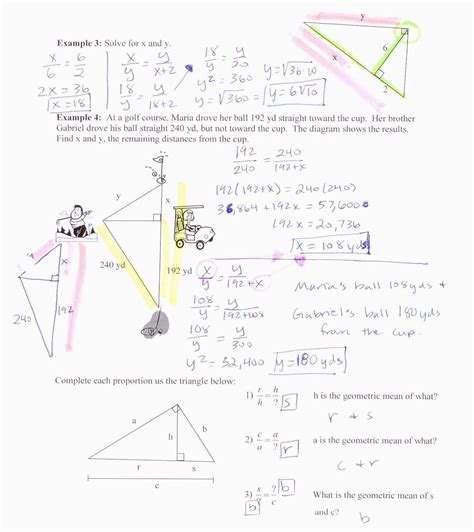 Example 3: Solve for x and y.
x/6 = 6/2
2x = 36
x = 18
x/y = y/x+2
18/y = y/18+2
18/y = y/20
y² = 360
y = √36·10
y = 6√10
y
x
6
2
Example 4: At a golf course, Maria drove her ball 192 yd straight toward the cup. Her brother
Gabriel drove his ball straight 240 yd, but not toward the cup. The diagram shows the results.
Find x and y, the remaining distances from the cup.
192/240 = 240/192+x
192(192+x) = 240(240)
36,864 + 192x = 57,600
192x = 20,736
x = 108 yds
y
x
240 yd
192 yd
x
192
240
x/y = y/192+x
108/y = y/192+108
108/y = y/300
y² = 32,400
y = 180 yds
Maria's ball 108 yds &
Gabriel's ball 180 yds
from the cup.
Complete each proportion us the triangle below:
a
b
h
r
s
c
1) r/h = h/? s h is the geometric mean of what?
r & s
2) c/a = a/? r a is the geometric mean of what?
c & r
3) s/? = ?/c b b What is the geometric mean of s
and c? b